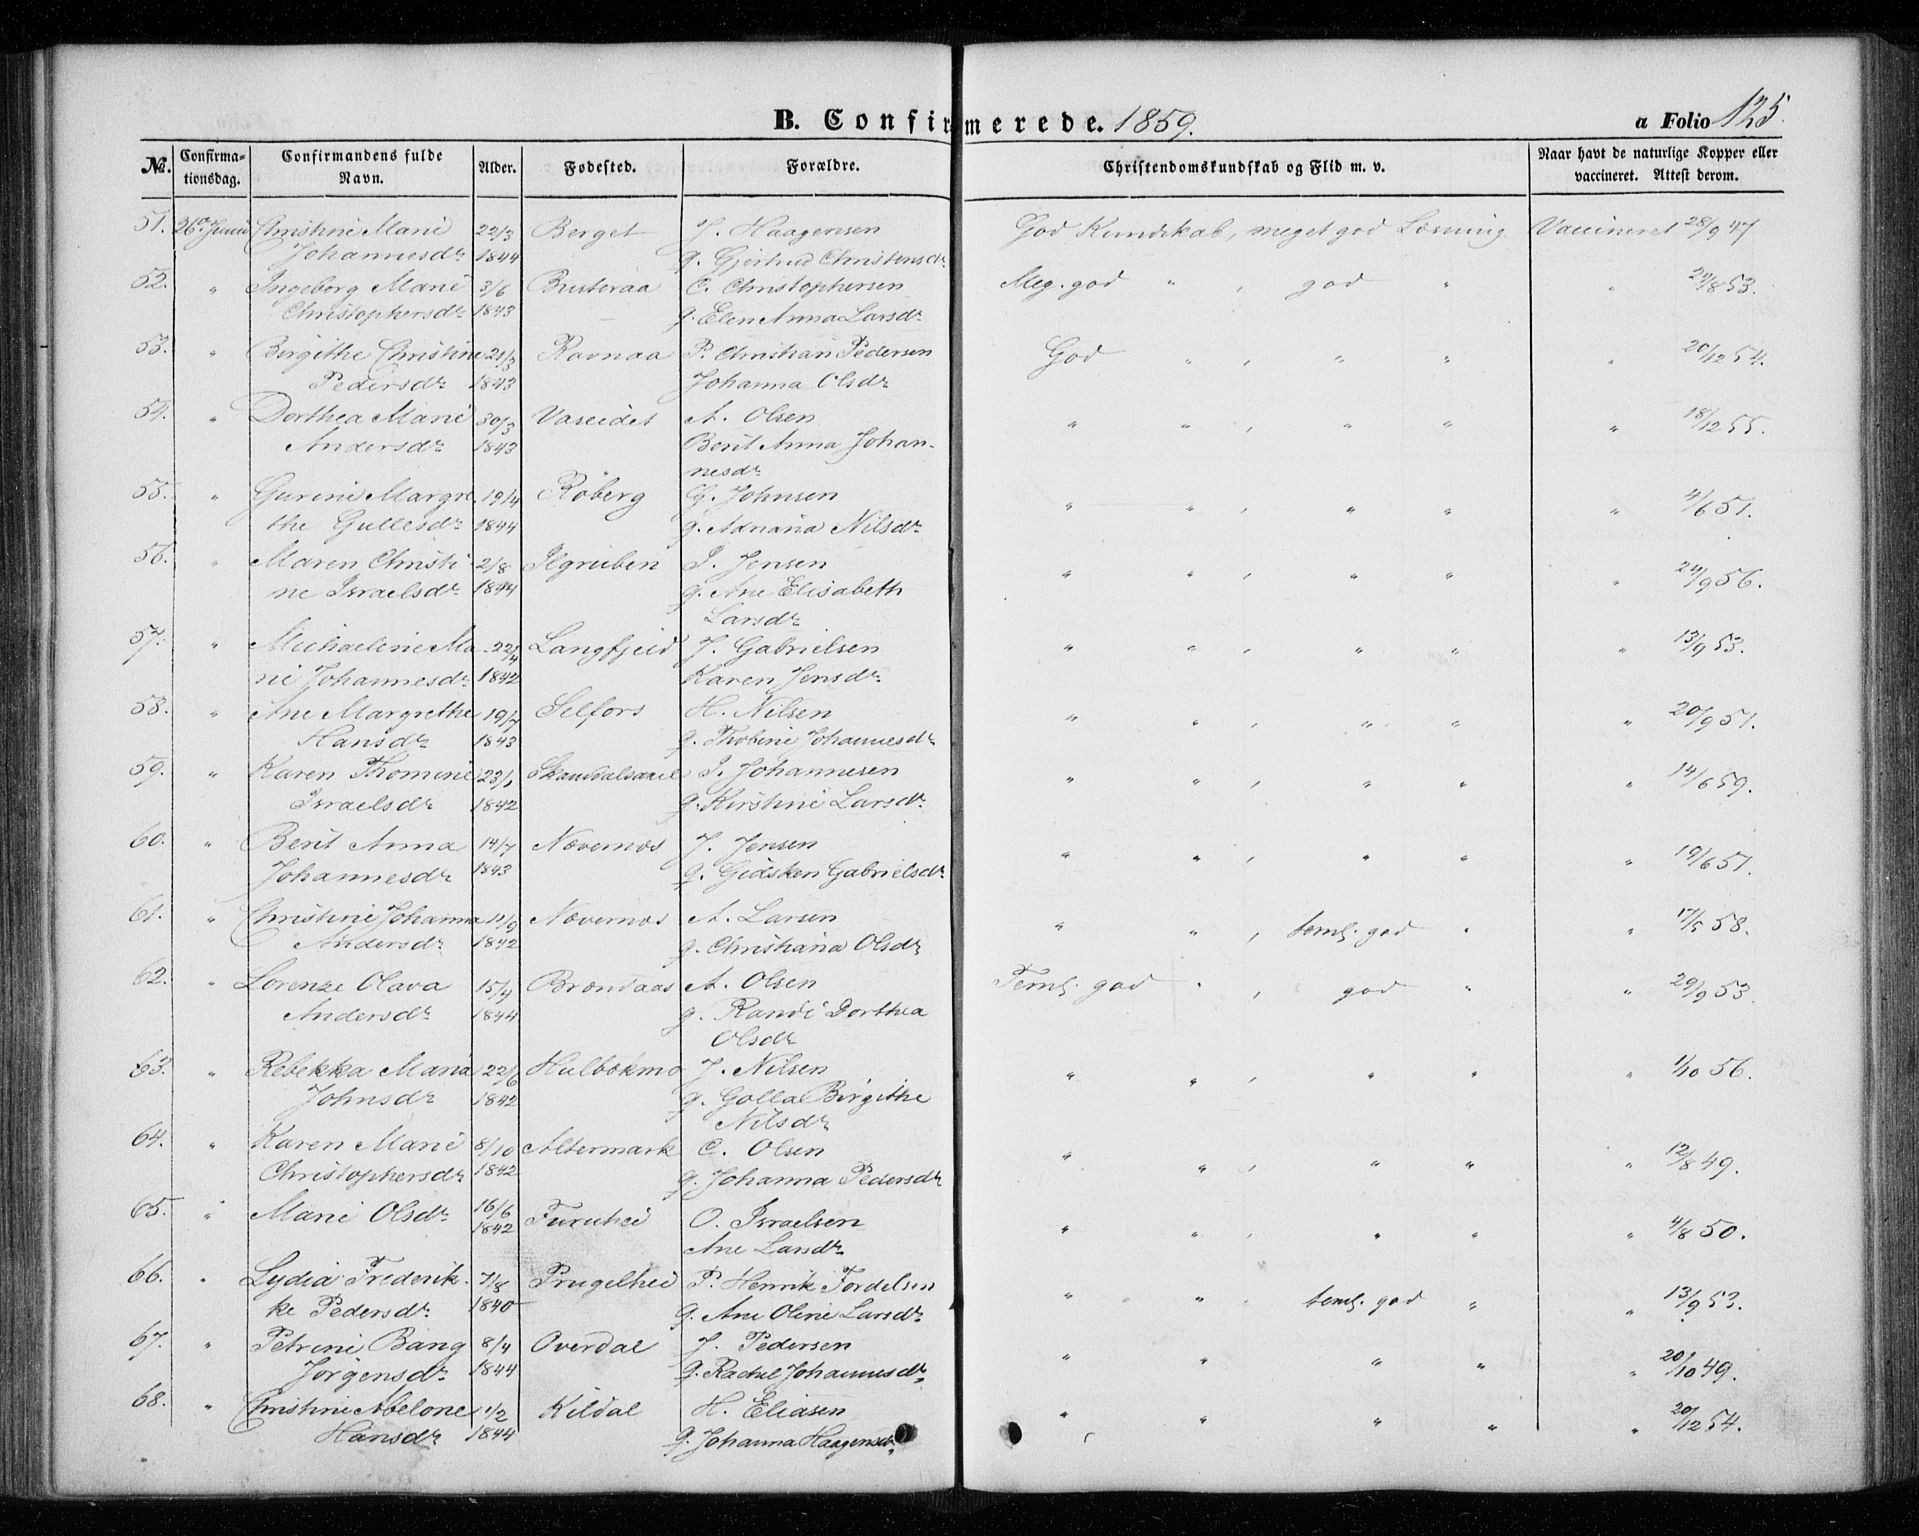 B. Confirmerede. 1859. a Folio 125.
№. Confirmationsdag. Confirmandens fulde Navn. Alder. Fødested. Forældre. Christendomskundskab og Flid m. v. Naar havt de naturlige Kopper eller vaccineret. Attest derom.
51. 26. Juni Christine Marie 22/3 Berget J. Haagensen God Kundskab, meget god Læsning Vaccineret 28/9 47
Johannesdr 1844 g. Gjertrud Christensdr
52. " Ingeborg Marie 3/6 Busteraa C. Christophersen Meg. god " , god " " 24/8 53.
Christophersdr 1843 g. Elen Anna Larsdr
53. " Birgithe Christine 21/3 Ravnaa P. Christian Pedersen God " , " " " 20/12 54.
Pedersdr 1843 Johanna Olsdr
54. " Dorthea Marie 30/3 Vaseidet A. Olsen " " , " " " 18/12 55.
Andersdr 1843 Berit Anna Johan-
nesdr
55. " Gurine Margre 19/4 Røberg G. Johnsen " " , " " " 4/6 51.
the Gullesdr 1844 g. Adriana Nilsdr
56. " Maren Christi 2/8 Ilgruben I. Jensen " " , " " " 24/9 56.
ne Israelsdr 1844 g. Ane Elisabeth
Larsdr
57. " Michaeline Ma 22/4 Langfjeld J. Gabrielsen " " , " " " 13/9 53.
rie Johannesdr 1842 Karen Jensdr
58. " Ane Margrethe 19/7 Selfors H. Nilsen " " , " " " 20/9 51.
Hansdr 1843 g. Thobine Johannesdr
59. " Karen Thomine 23/1 I. Johannesen " " , " " " 14/6 59.
Israelsdr 1842 g. Kirstine Larsdr
60. " Berit Anna 14/7 Nævernes J. Jensen " " , " " " 19/6 51.
Johannesdr 1843 g. Gidsken Gabrielsdr
61. " Christine Johanna 11/9 Nævernes A. Larsen " " , temlj. god " " 17/5 58.
Andersdr 1842 g. Christiana Olsdr
62. " Lorenze Olava 15/4 Brendaas A. Olsen Temlj. god " , god " " 29/9 53.
Andersdr 1844 g. Randi Dorthea
Olsdr
63. " Rebekka Maria 22/6 Hulbækmo J. Nilsen " " , " " " 1/10 56.
Johnsdr 1842 g. Golla Birgithe
Nilsdr
64. " Karen Marie 8/10 Altermark C. Olsen " " , " " " 12/8 49.
Christophersdr 1842 g. Johanna Pedersdr
65. " Marie Olsdr 16/6 Furuhei O. Israelsen " " , " " " 4/8 50.
1842 Ane Larsdr
66. " Lydia Frederik- 7/8 Prugelhei P. Henrik Fordelsen " " " temlj. god " " 13/9 53.
ke Pedersdr 1840 g. Ane Oline Larsdr
67. " Petrine Bang 8/4 Overdal J. Pedersen " " " " " 20/10 49.
Jørgensdr 1844 g. Rachel Johannesdr
68. " Christine Abelone 1/2 Kildal H. Eliasen " " , " " " 20/12 54.
Hansdr 1844 g. Johanna Haagensdr